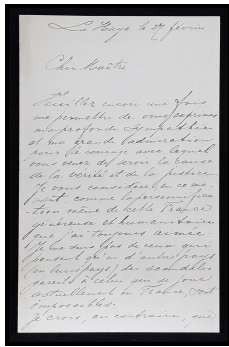 La Haye le 27 février
Cher Maître
Veuillez encore une fois
me permettre de vous exprimer
ma profonde sympathie
et ma grande admiration
pour le courage avec lequel
vous venez de servir la cause
de la vérité et de la justice.
Je vous considère en ce mo-
ment, comme la personnifica-
tion même de cette France
généreuse et humanitaire
que j'ai toujours aimée.
Je ne suis pas de ceux qui
pensent qu'en d'autres pays
(en leurs pays) des scandales
pareils à celui qui se joue
actuellement en France, sont
impossibles.
Je crois, au contraire, que